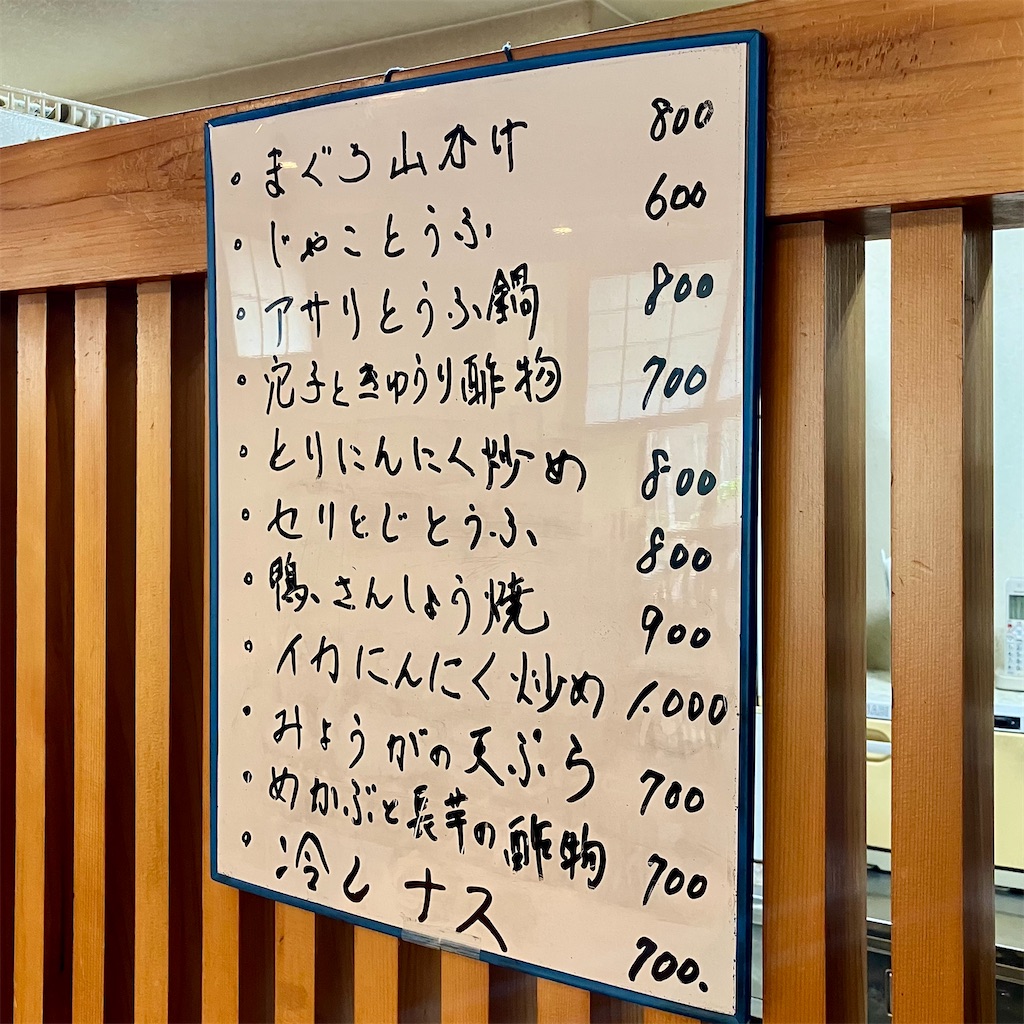 。まぐろ山かけ 800
。じゃことうふ 600
。アサリとうふ鍋 800
。穴子ときゅうり酢物 700
。とりにんにく炒め 800
。セリとじとうふ 800
。鴨さんしょう焼 900
。イカにんにく炒め 1.000
。みょうがの天ぷら 700
。めかぶと長芋の酢物 700
。冷しナス 700.